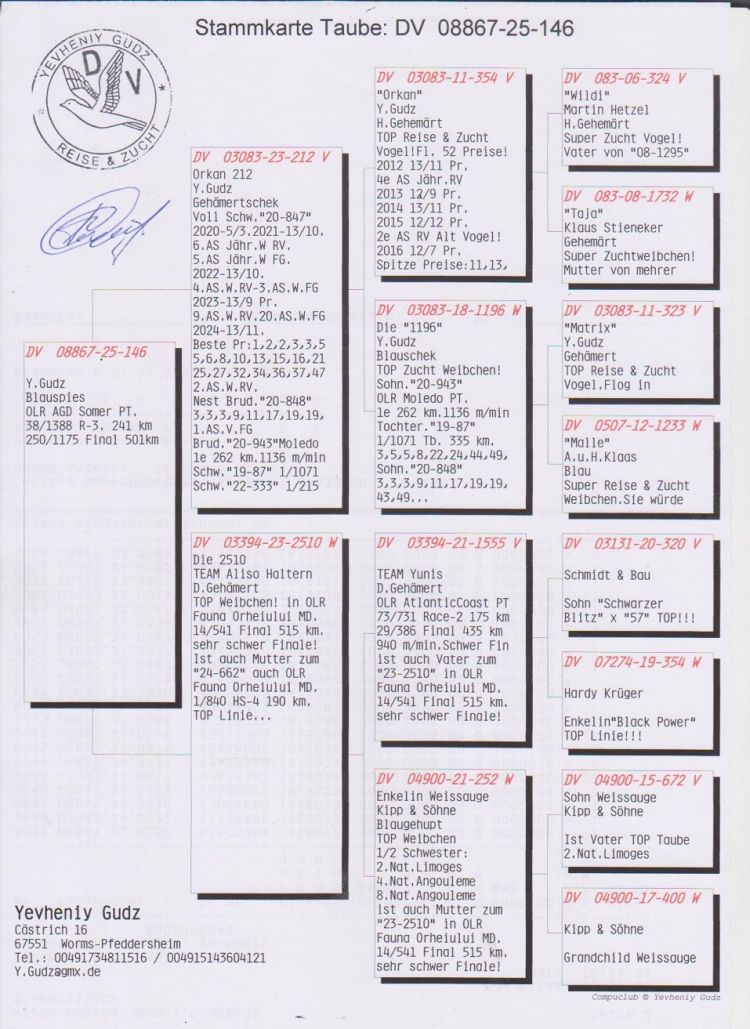 Stammkarte Taube: DV 08867-25-146
YEVHENIY GUDZ
D V
* REISE & ZUCHT *
DV 08867-25-146
Y.Gudz
Blauspies
OLR AGD Somer PT.
38/1388 R-3. 241 km
250/1175 Final 501km
DV 03083-23-212 V
Orkan 212
Y.Gudz
Gehämertschek
Voll Schw."20-847"
2020-5/3.2021-13/10.
6.AS Jähr.W RV.
5.AS Jähr.W FG.
2022-13/10.
4.AS.W.RV-3.AS.W.FG
2023-13/9 Pr.
9.AS.W.RV.20.AS.W.FG
2024-13/11.
Beste Pr:1,2,2,3,3,5
5,6,8,10,13,15,16,21
25,27,32,34,36,37,47
2.AS.W.RV.
Nest Brud."20-848"
3,3,3,9,11,17,19,19,
1.AS.V.FG
Brud."20-943"Moledo
1e 262 km.1136 m/min
Schw."19-87" 1/1071
Schw."22-333" 1/215
DV 03394-23-2510 W
Die 2510
TEAM Aliso Haltern
D.Gehämert
TOP Weibchen! in OLR
Fauna Orheiului MD.
14/541 Final 515 km.
sehr schwer Finale!
Ist auch Mutter zum
"24-662" auch OLR
Fauna Orheiului MD.
1/840 HS-4 190 km.
TOP Linie...
DV 03083-11-354 V
"Orkan"
Y.Gudz
H.Gehemärt
TOP Reise & Zucht
Vogel!Fl. 52 Preise!
2012 13/11 Pr.
4e AS Jähr.RV
2013 12/9 Pr.
2014 13/11 Pr.
2015 12/12 Pr.
2e AS RV Alt Vogel!
2016 12/7 Pr.
Spitze Preise:11,13,
DV 03083-18-1196 W
Die "1196"
Y.Gudz
Blauschek
TOP Zucht Weibchen!
Sohn."20-943"
OLR Moledo PT.
1e 262 km.1136 m/min
Tochter."19-87"
1/1071 Tb. 335 km.
3,5,5,8,22,24,44,49,
Sohn."20-848"
3,3,3,9,11,17,19,19,
43,49...
DV 03394-21-1555 V
TEAM Yunis
D.Gehämert
OLR AtlanticCoast PT
73/731 Race-2 175 km
29/386 Final 435 km
940 m/min.Schwer Fin
ist auch Vater zum
"23-2510" in OLR
Fauna Orheiului MD.
14/541 Final 515 km.
sehr schwer Finale!
DV 04900-21-252 W
Enkelin Weissauge
Kipp & Söhne
Blaugehupt
TOP Weibchen
1/2 Schwester:
2.Nat.Limoges
4.Nat.Angouleme
8.Nat.Angouleme
ist auch Mutter zum
"23-2510" in OLR
Fauna Orheiului MD.
14/541 Final 515 km.
sehr schwer Finale!
DV 083-06-324 V
"Wildi"
Martin Hetzel
H.Gehemärt
Super Zucht Vogel!
Vater von "08-1295"
DV 083-08-1732 W
"Taja"
Klaus Stieneker
Gehemärt
Super Zuchtweibchen!
Mutter von mehrer
DV 03083-11-323 V
"Matrix"
Y.Gudz
Gehämert
TOP Reise & Zucht
Vogel.Flog in
DV 0507-12-1233 W
"Malle"
A.u.H.Klaas
Blau
Super Reise & Zucht
Weibchen.Sie würde
DV 03131-20-320 V
Schmidt & Bau
Sohn "Schwarzer
Blitz" x "57" TOP!!!
DV 07274-19-354 W
Hardy Krüger
Enkelin"Black Power"
TOP Linie!!!
DV 04900-15-672 V
Sohn Weissauge
Kipp & Söhne
Ist Vater TOP Taube
2.Nat.Limoges
DV 04900-17-400 W
Kipp & Söhne
Grandchild Weissauge
Yevheniy Gudz
Cästrich 16
67551 Worms-Pfeddersheim
Tel.: 00491734811516 / 004915143604121
Y.Gudz@gmx.de
Compuclub © Yevheniy Gudz